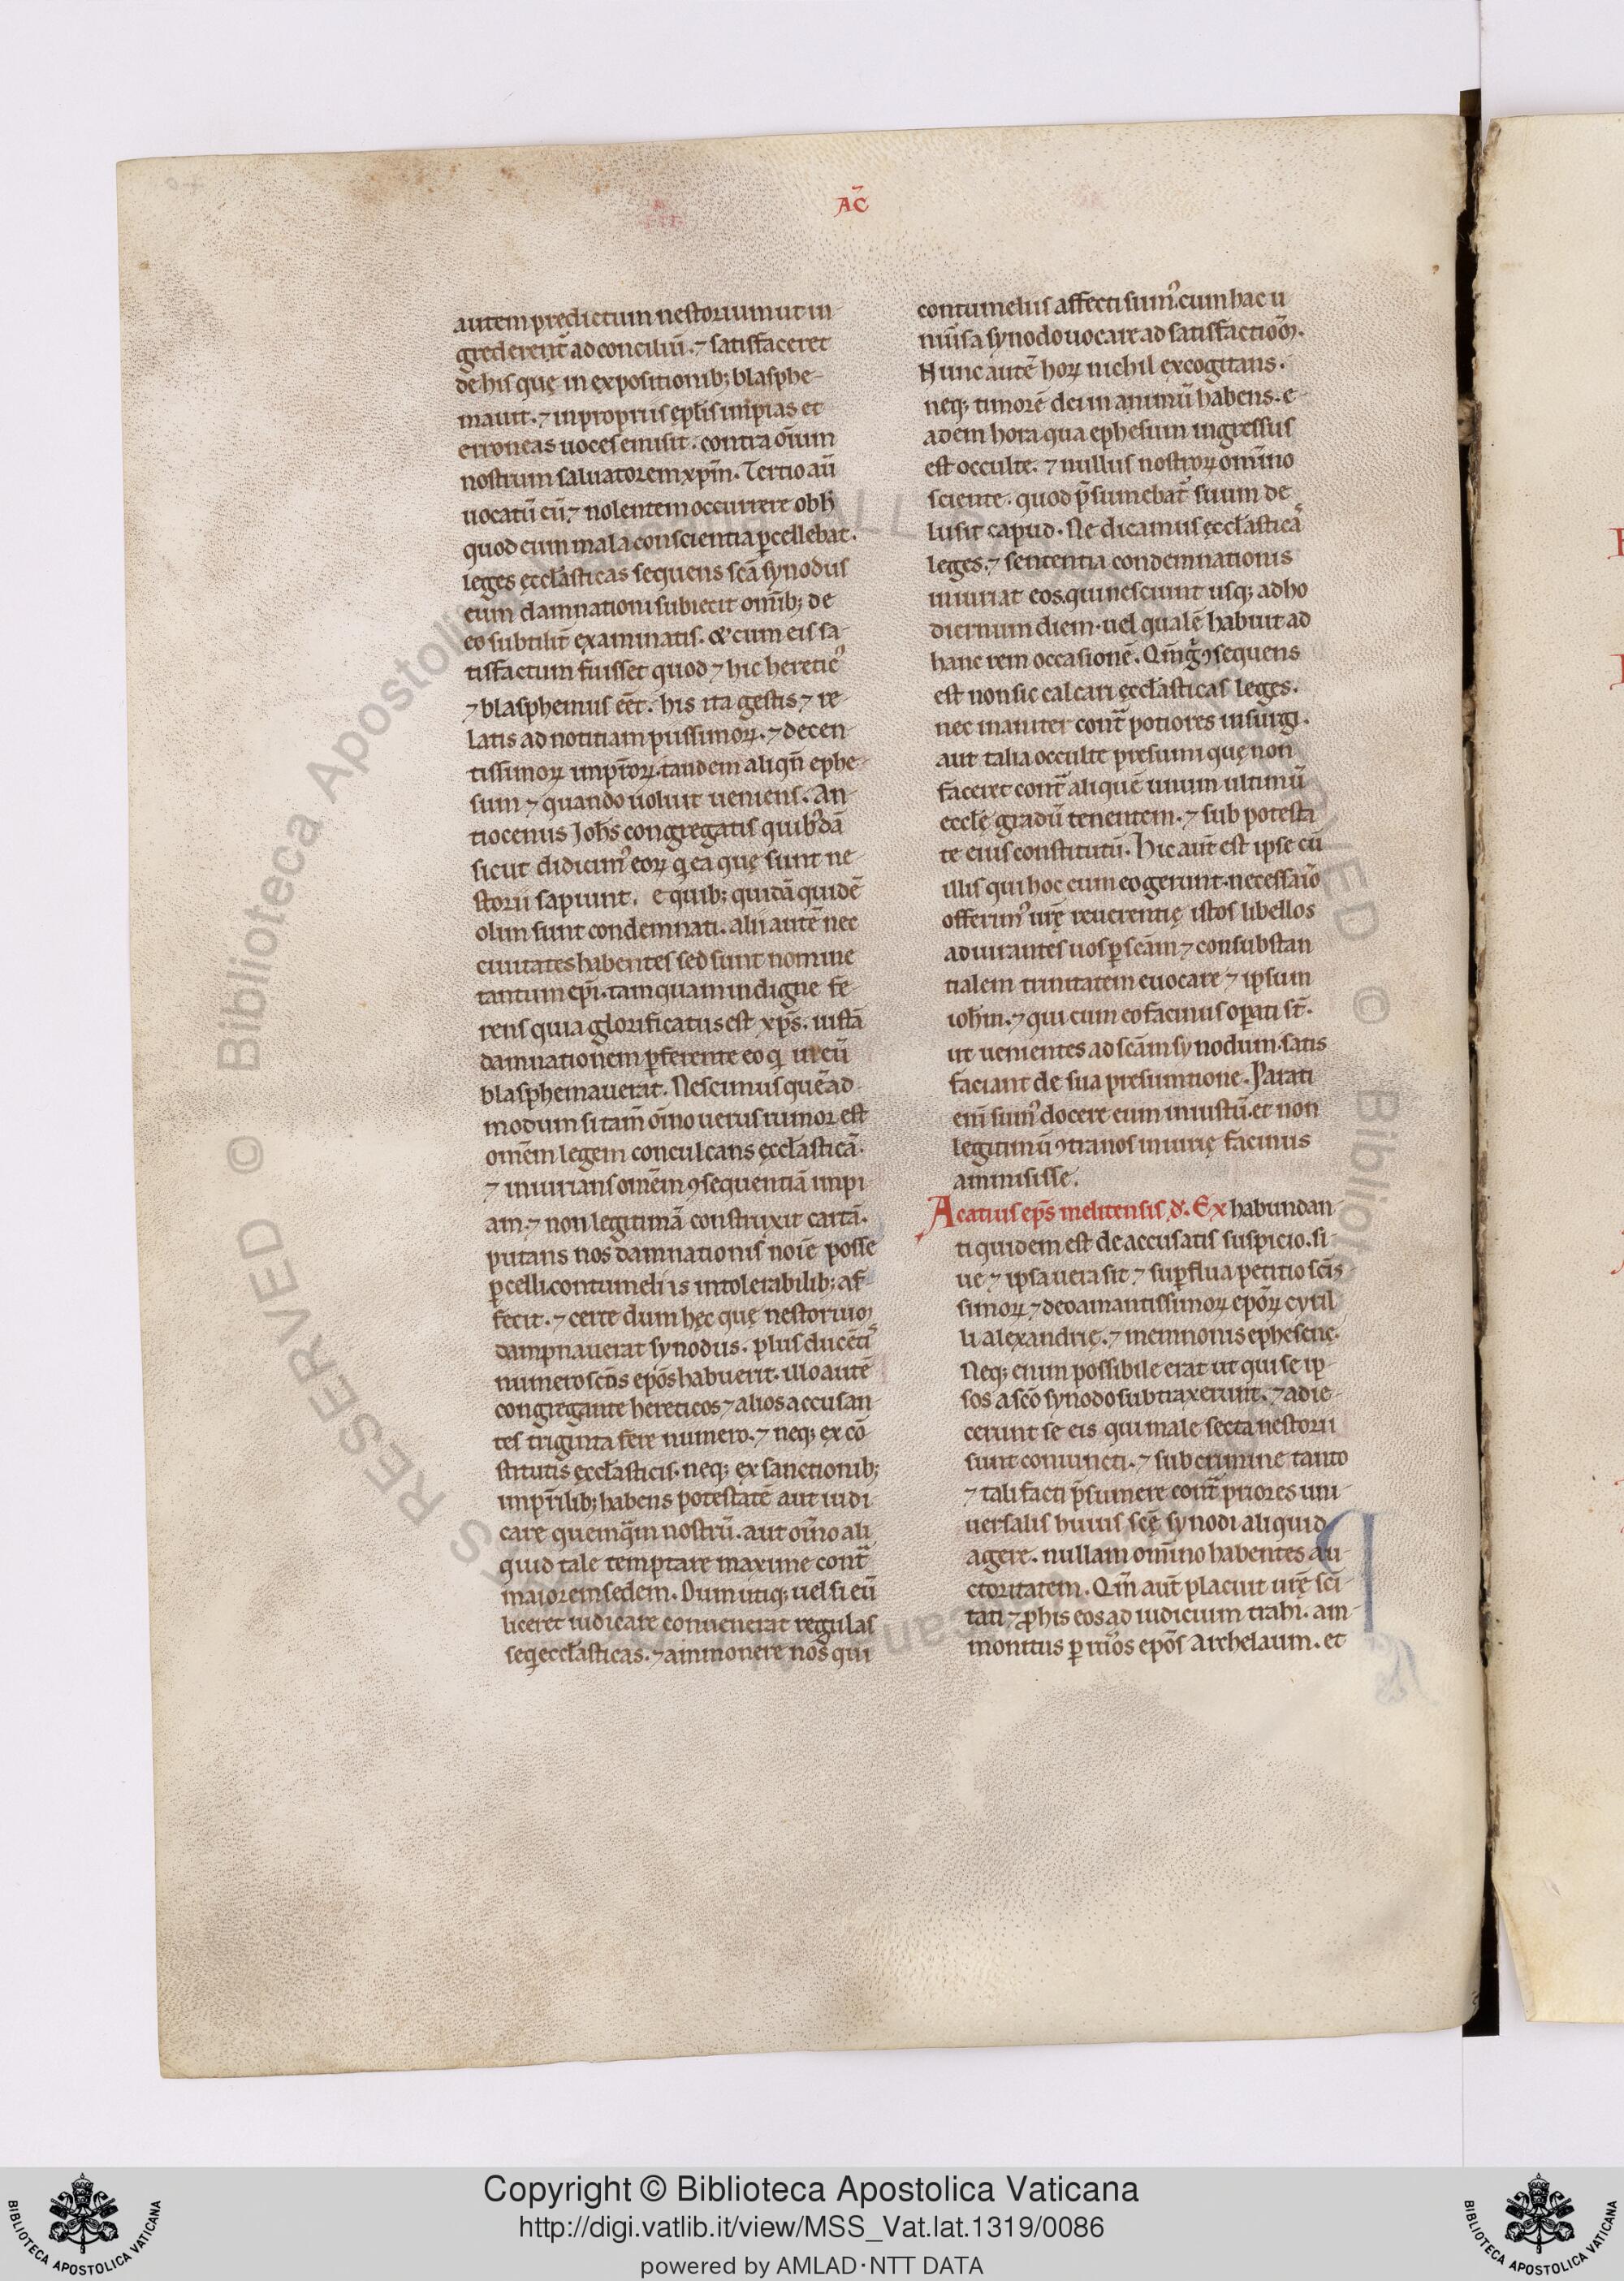 AC̄
autem predictum nestorium ut in-
grederent̄ ad conciliū. ⁊ satisfaceret
de his quę in expositionib; blasphe-
mauit. ⁊ in propriis ep̄lis inpias et
erroneas uoces emisit. contra om̄ium
nostrum saluatorem xp̄m. Tertio aū
uocatū eū ⁊ nolentem occurrere ob h̄
quod eum mala conscientia ꝑcellebat.
leges ęccl̄asticas sequens sc̄a synodus
eum damnationi subiecit om̄ib; de
eo subtilit̄ examinatis. & cum eis sa-
tisfactum fuisset quod ⁊ hic heretic᾿
⁊ blasphemus eēt. his ita gestis ⁊ re-
latis ad notitiam piissimoꝝ. ⁊ decen-
tissimoꝝ imp̄r̄oꝝ. tandem aliqn̄ ephe-
sum ⁊ quando uoluit ueniens. An-
tiocenus Joh̄s congregatis quib᾿dā
sicut didicim᾿ eoꝝ q̇ ea quę sunt ne-
storii sapiunt. e quib; quidā quidē
olim sunt condemnati. alii autē nec
ciuitates habentes sed sunt nomine
tantum ep̄i. tamquam indigne fe-
rens quia glorificatus est xp̄s. iustā
damnationem ꝑferente eo qi in eū
blasphemauerat. Nescimus quēad-
modum si tam̄ om̄o uerus rumor est
omēm legem conculcans ęccl̄asticā.
⁊ iniurians omēm ꝯsequentiā impi-
am ⁊ non legitimā construxit cartā.
putans nos damnationis noīe posse
ꝑcelli. contumeliis intolerabilib; af-
fecit. ⁊ certe dum hęc quę nestoriuꝫ
dampnauerat synodus. plus ducētis
numero sc̄ōs ep̄ōs habuerit. illo autē
congregante hereticos ⁊ alios accusan
tes triginta fere numero. ⁊ neq; ex cō
stitutis ęccl̄asticis. neq; ex sanctionib;
imp̄r̄ilib; habens potestatē aut iudi
care quemq̄m nostrū. aut om̄o ali
quid tale temptare maxime cont̄
maiorem sedem. Dum utiq; uel si eū
liceret iudicare conuenerat regulas
seq̇ ęccl̄asticas. ⁊ ammonere nos qui
contumeliis affecti sum᾿. cum hac u
niu᾿sa synodo uocare ad satisfactiōēꝫ.
Nunc autē hoꝝ nichil excogitans.
neq; timorē dei in animū habens. e-
adem hora qua ephesum ingressus
est occulte. ⁊ nullus nostroꝝ om̄ino
sciente. quod p̄sumebat᾿ suum de
lusit capud. Ne dicamus ęccl̄asticas
leges. ⁊ sententia condemnationis
iniuriat eos. qui nesciunt usq; ad ho
diernum diem. uel qualē habuit ad
hanc rem occasionē. Qm̄ g̊ ꝯsequens
est non sic calcari ęccl̄asticas leges.
nec inaniter cont̄ potiores insurgi.
aut talia occulte presumi quę non
faceret cont̄ aliquē unum ultimū
eccl̄ę gradū tenentem. ⁊ sub potesta
te eius constitutū. Hic aut̄ est ipse cū
illis qui hoc cum eo gerunt. necessario
offerim᾿ ur̄ę reuerentię istos libellos
adiurantes uos ꝑ sc̄am ⁊ consubstan
tialem trinitatem euocare ⁊ ipsum
ioh̄m. ⁊ qui cum eo facinus oꝑati st̄.
ut uenientes ad sc̄am synodum. satis
faciant de sua presumtione. Parati
eni̅ sum᾿ docere eum iniustū. et non
legitimū ꝯtra nos iniurię facinus
ammisisse.
Acatius ep̄s melitensis. d᾿. Ex habundan-
ti quidem est de accusatis suspicio. si-
ue ⁊ ipsa uera sit ⁊ suꝑflua petitio sc̄is-
simoꝝ ⁊ deo amantissimoꝝ ep̄ōꝝ cyril
li alexandrię. ⁊ memnonis ephesenę.
Neq; enim possibile erat ut qui se ip-
sos a sc̄o synodo subtraxerunt. ⁊ adie-
cerunt se eis qui male secta nestorii
sunt conuincti. ⁊ sub crimine tanto
⁊ tali facti p̄sumere cont̄ priores uni-
uersalis huius sc̄ę synodi aliquid
agere. nullam om̄ino habentes au-
ctoritatem. Qm̄ aut̄ placuit ur̄ę sc̄i-
tati ⁊ ꝓ his eos ad iudicium trahi. am-
monitus ꝑ uir̄os ep̄ōs Archelaum. et
Copyright © Biblioteca Apostolica Vaticana
http://digi.vatlib.it/view/MSS_Vat.lat.1319/0086
powered by AMLAD·NTT DATA